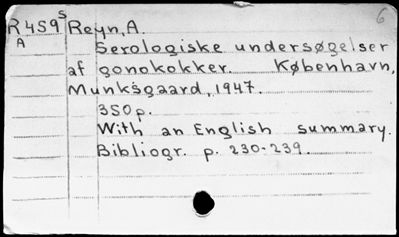 6
R459 S Reyn, A.
A
Serologiske undersøgelser
af gonokokker. København,
Munksgaard, 1947.
350p.
With an English summary.
Bibliogr. p. 230-239.